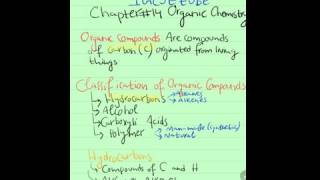 Chapter#14 Organic Chemistry
Organic Compounds Are compounds
of Carbon (C) originated from living
things
Classification of Organic Compounds
Hydrocarbons Alkanes
Alkenes
Alcohol
Carboxylic Acids
Polymer man-made (synthetic)
Natural
Hydrocarbons
Compounds of C and H